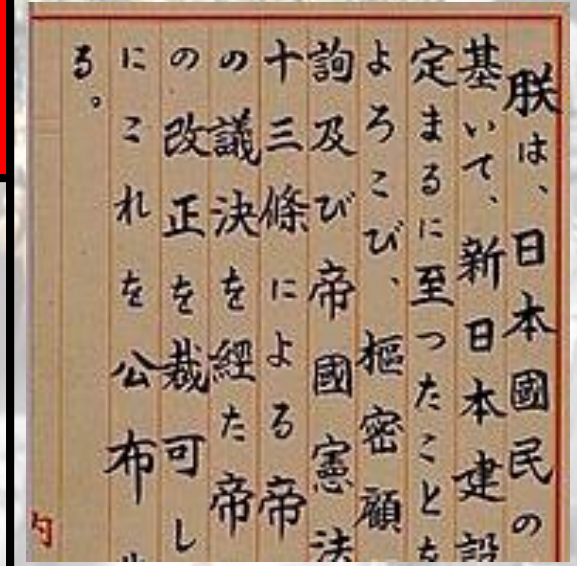 朕は、日本國民の
基いて、新日本建設
定まるに至つたことを
よろこび、樞密顧
詢及び帝國憲法
十三條による帝
の議決を經た帝
の改正を裁可し
にこれを公布せ
る。